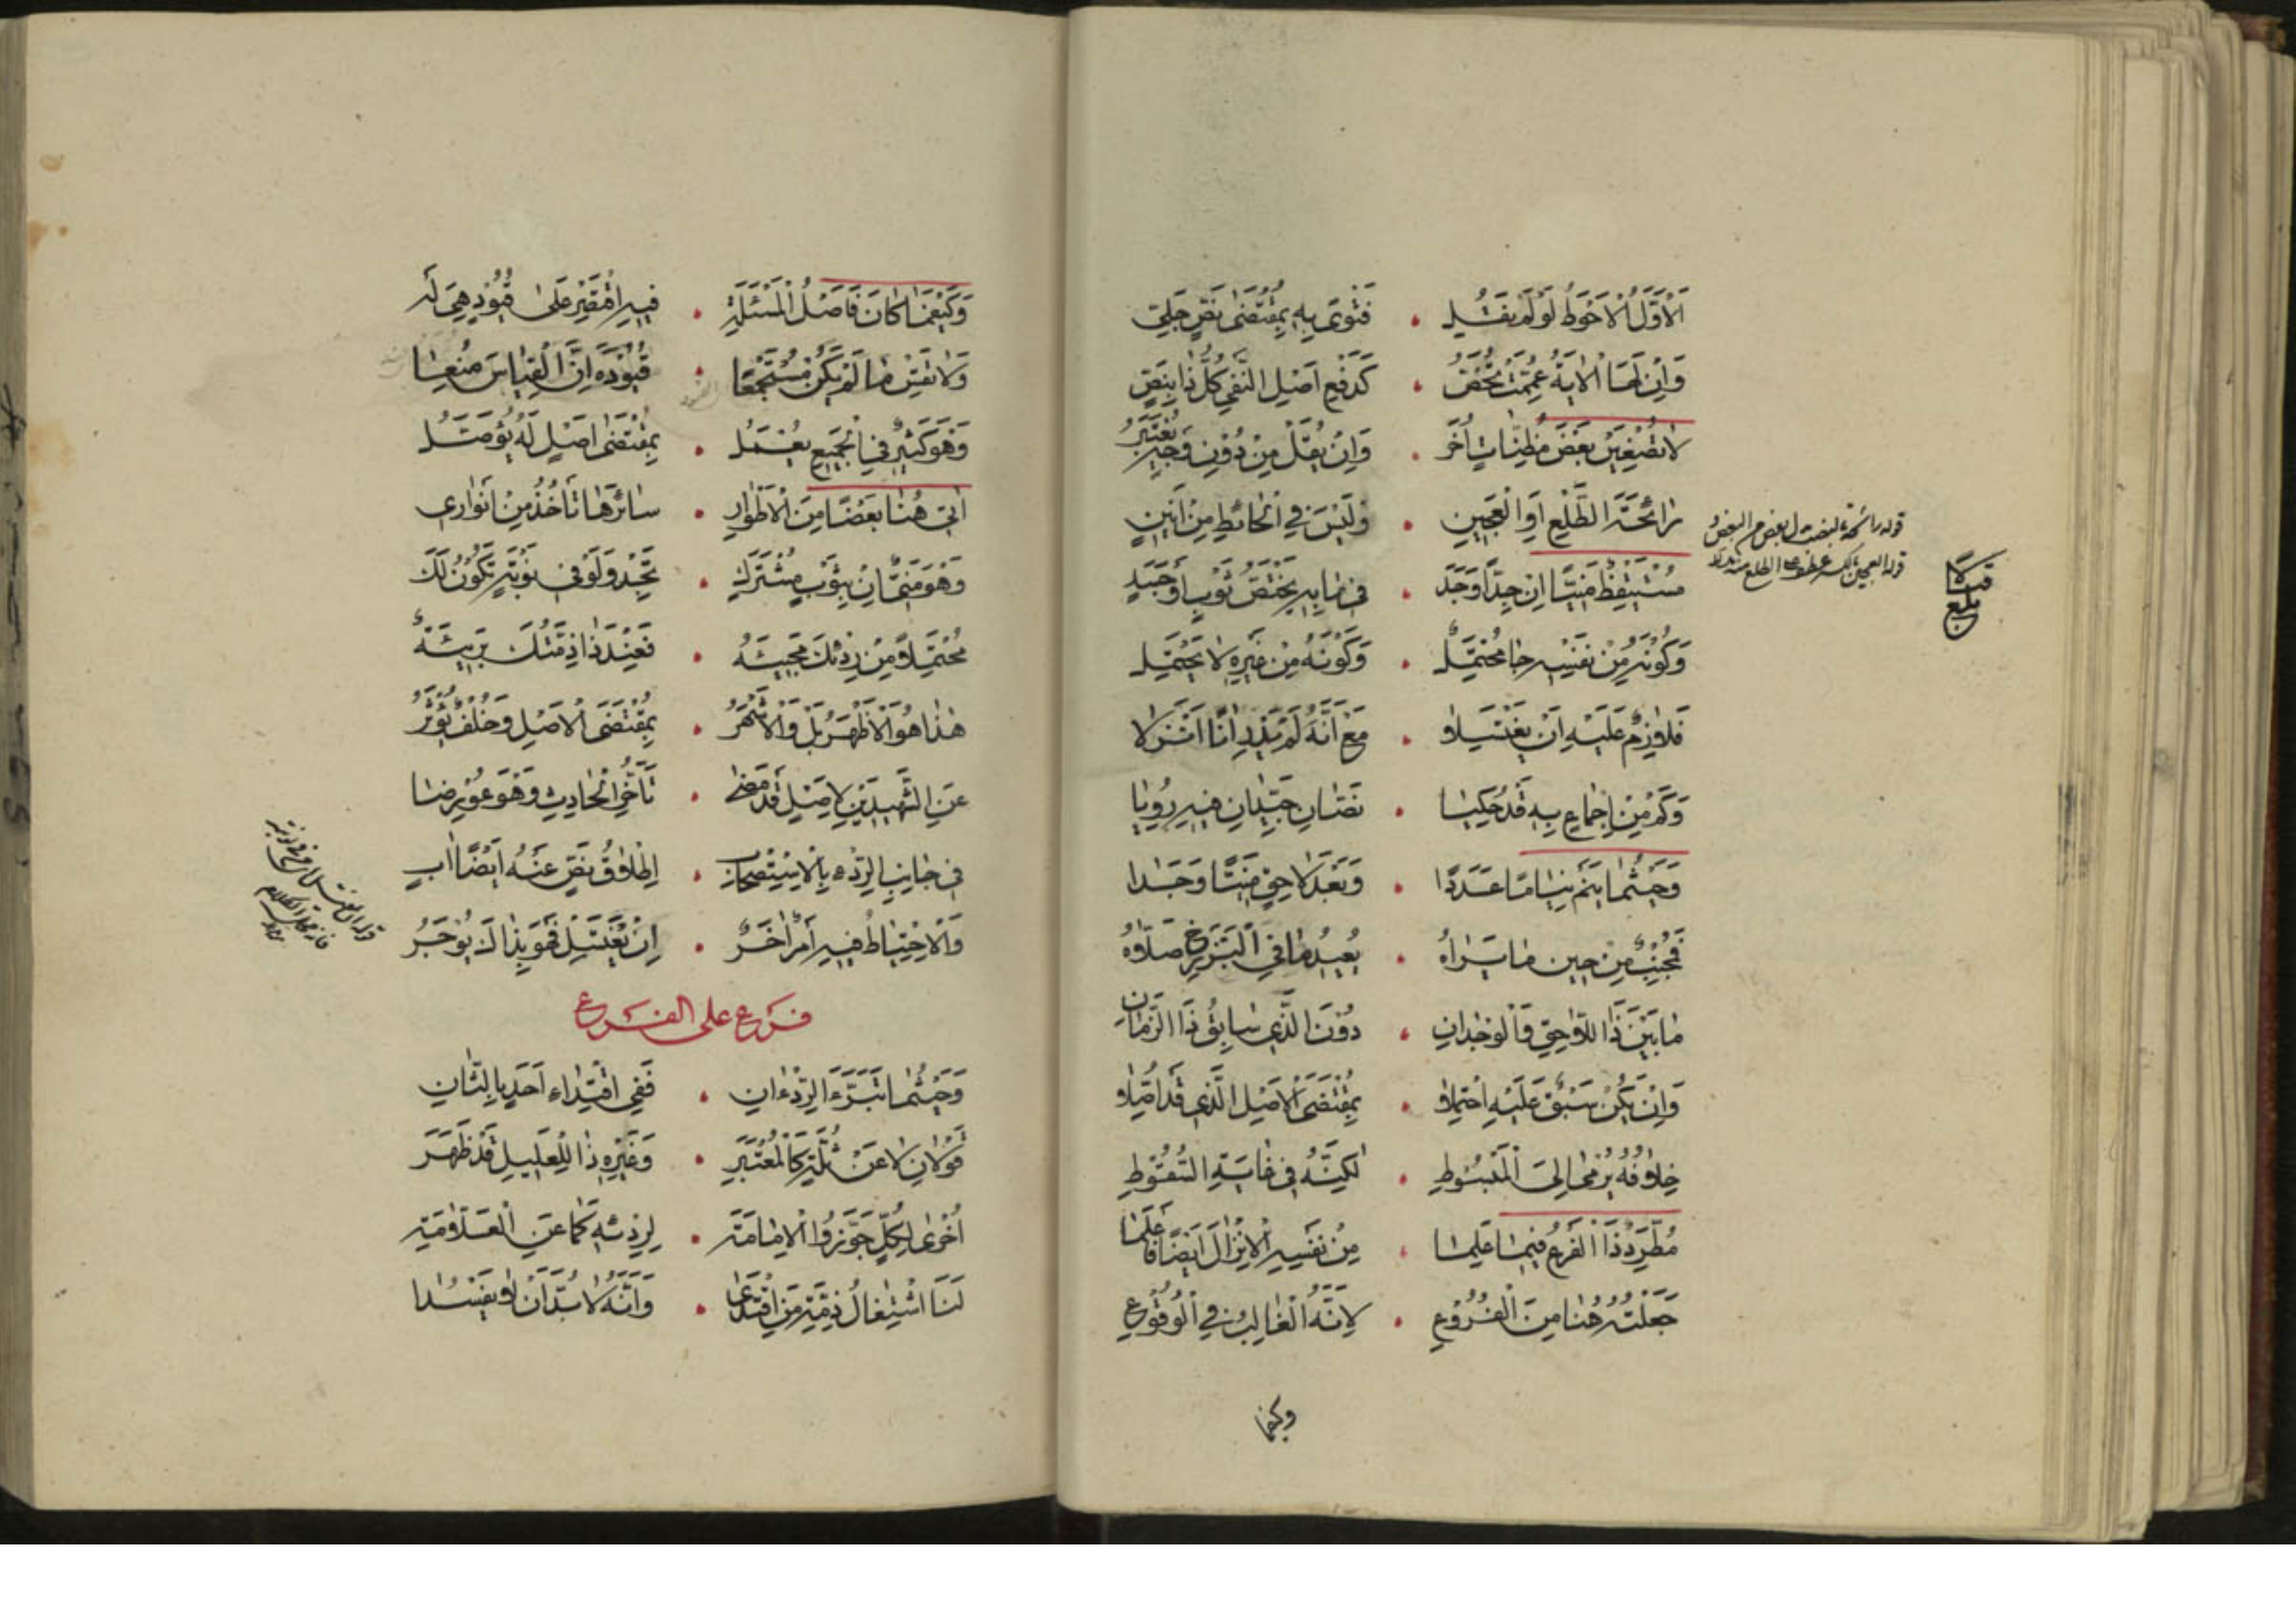 اَلْاَوَّلُ الْاَحْوَطُ لَوْ لَمْ نَقُلِ • فَتْوىً بِهِ بِمُقْتَضٰى نَصٍّ جَلِيّ
وَاِنْ لَهَا الْاٰيَةُ عُمِّمَتْ تُخَصّ • كَدَفْعِ اَصْلِ النَّفْيِ كُلُّ ذَا بِنَصّ
لَا تُصْغِيَنْ بَعْضَ مَظِنَّاتٍ اُخَر • وَاِنْ يُقَلْ مِنْ دُوْنِ وَجْهٍ يُعْتَبَرُ
رَائِحَةَ الطَّلْعِ اَوِ الْعَجِيْنِ • وَلَيْسَ فِي الْحَائِطِ مِنْ اٰنِيْنِ
مُسْتَيْقِظٌ مَنِيًّا اِنْ جِدًّا وَجَدَ • فِي مَا بِهِ يَخْتَصُّ ثَوْبٍ اَوْ جَسَدٍ
وَكَوْنُهُ مِنْ نَفْسِهِ جَا مُحْتَمَلْ • وَكَوْنُهُ مِنْ غَيْرِهِ لَا يُحْتَمَلْ
فَلَازِمٌ عَلَيْهِ اَنْ يَغْتَسِلَا • مَعَ اَنَّهُ لَمْ يَدْرِ اٰنًا اَنْزَلَا
وَكَمْ مِنْ اِجْمَاعٍ بِهِ قَدْ حُكِيَا • نَصَّانِ جَيِّدَانِ فِيْهِ رُوِيَا
وَحَيْثُمَا يَنَمْ نِيَامًا عَدَدًا • وَبَعْدَ لَاحِقٍ مَنِيًّا وَجَدَا
فَجُنُبٌ مِنْ حِيْنِ مَا يَرَاهُ • يُعِيْدُ مَا فِي الْبَرْزَخِ صَلَّاهُ
مَا بَيْنَ ذَا اللَّاحِقِ وَالْوِجْدَانِ • دُوْنَ الَّذِي سَابِقُ ذَا الزَّمَانِ
وَاِنْ يَكُنْ سَبْقٌ عَلَيْهِ احْتُمِلَا • بِمُقْتَضَى الْاَصْلِ الَّذِي قَدْ اُصِّلَا
خِلَافُهُ يُرْمٰى اِلَى الْمَبْسُوْطِ • لٰكِنَّهُ فِي غَايَةِ السُّقُوْطِ
مُطَّرِدٌ ذَا الْفَرْعُ فِيْمَا عَلِمَا • مِنْ نَفْسِهِ الْاِنْزَالَ اَيْضًا فَاعْلَمَا
جَعَلْتُهُ هُنَا مِنَ الْفُرُوْعِ • لِاَنَّهُ الْغَالِبُ فِي الْوُقُوْعِ
قوله رائحة بالنصب
بلغ
وكيفما
وَكَيْفَمَا كَانَ فَاَصْلُ الْمَسْئَلَةِ • فِيْهِ اقْتَصِرْ عَلٰى قُيُوْدٍ هِيَ لَه
وَلَا تَقِسْ مَا لَمْ يَكُنْ مُسْتَجْمِعًا • قُيُوْدَهُ اِنَّ الْقِيَاسَ مُنِعَا
وَهَوَ كَثِيْرٌ فِي الْجَمِيْعِ يُعْمَلُ • بِمُقْتَضٰى اَصْلٍ لَهُ يُؤَصَّلُ
اٰتِي هُنَا بَعْضًا مِنَ الْاَطْوَارِ • سَائِرَهَا تَأْخُذُ مِنْ اَنْوَارِي
وَهْوَ مَتٰى اِنْ بِثَوْبٍ مُشْتَرَكْ • تَجِدْ وَلَوْ فِي نَوْبَةٍ تَكُوْنُ لَكَ
مُحْتَمَلًا مِنْ رِدْئِكَ مَجِيْئُهُ • فَعِنْدَ ذَا ذِمَّتُكَ بَرِيْئَةٌ
هٰذَا هُوَ الْاَظْهَرُ بَلْ وَالْاَشْهَرُ • بِمُقْتَضَى الْاَصْلِ وَخُلْفٌ يُؤْثَرُ
عَنِ الشَّهِيْدَيْنِ لِاَصْلٍ قَدْ مَضٰى • تَاَخُّرِ الْحَادِثِ وَهْوَ عُوْرِضَا
فِي جَانِبِ الرِّدْءِ بِالْاِسْتِصْحَابِ • اِطْلَاقُ نَصٍّ عَنْهُ اَيْضًا اٰبِ
وَالْاِحْتِيَاطُ فِيْهِ اَمْرٌ اٰخَرُ • اِنْ يَغْتَسِلْ فَهْوَ بِذَاكَ يُوْجَرُ
فرع على الفرع
وَحَيْثُمَا تَبَرَّءَ الرِّدْءَانِ • فَفِي اقْتِدَاءِ اَحَدٍ بِالثَّانِ
قَوْلَانِ لَا عَنْ ثُلَّةٍ كَالْمُعْتَبَرِ • وَغَيْرِهِ ذَا لِلْعَلِيْلِ قَدْ ظَهَرَ
اُخْرٰى لِكُلٍّ جَوَّزُوا الْاِمَامَةَ • لِرِدْئِهِ كَمَا عَنِ الْعَلَّامَةِ
لَنَا اشْتِغَالُ ذِمَّةِ مَنِ اقْتَدٰى • وَاَنَّهُ لَابُدَّ اَنْ لَا يَفْسُدَا